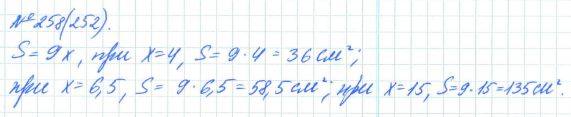 №258(252).
S = 9x, при x=4, S = 9·4 = 36 см²;
при x = 6,5, S = 9·6,5 = 58,5 см²; при x = 15, S=9·15=135 см².